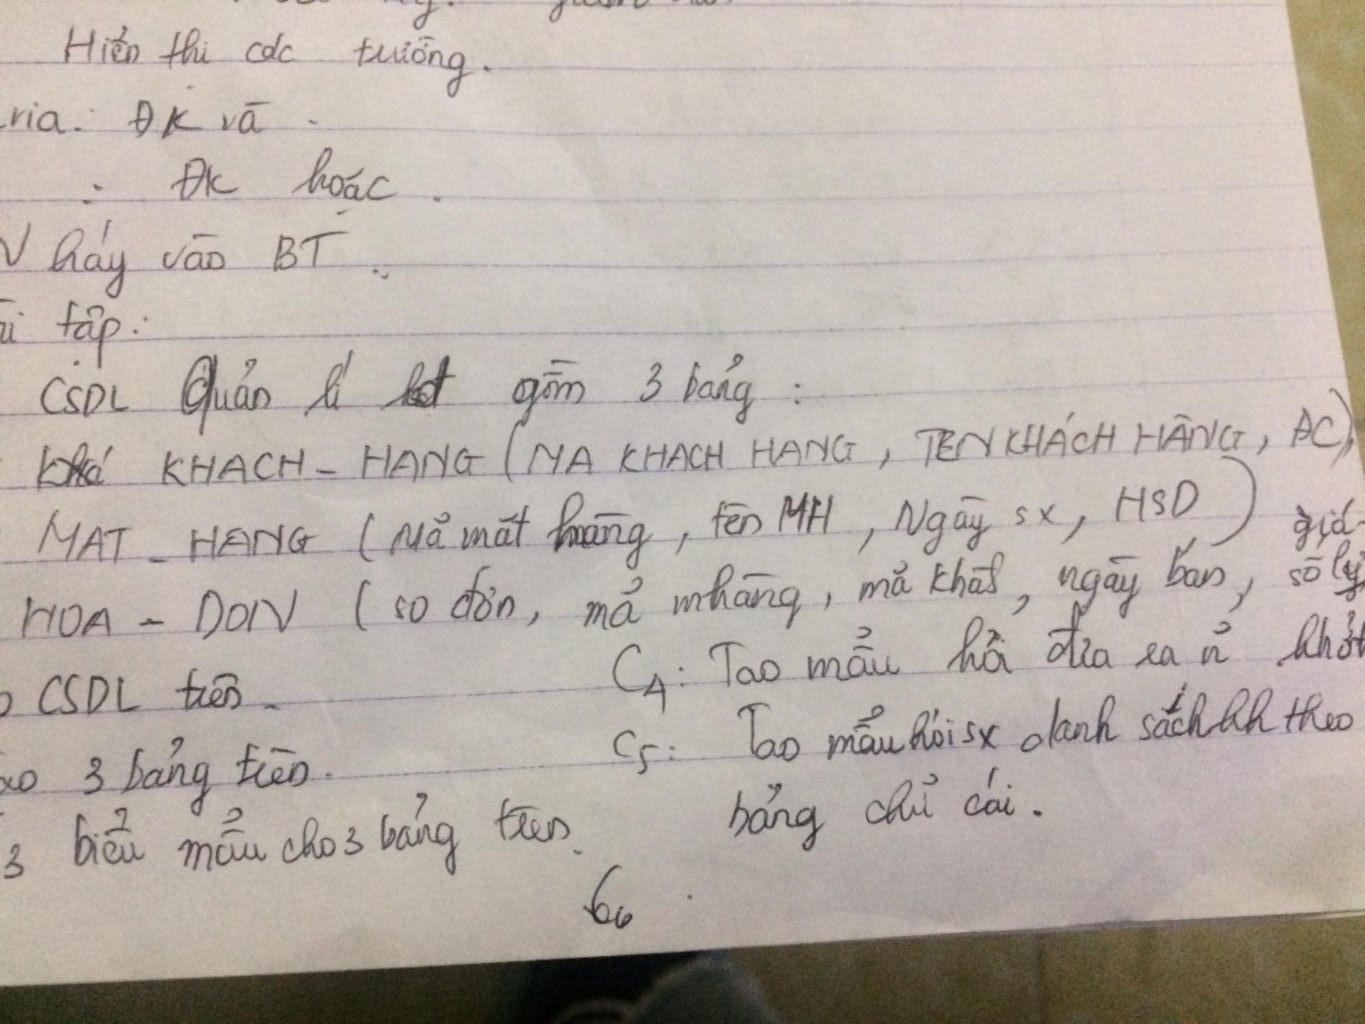 Hiển thi các trường.
ria: ĐK và
: ĐK hoặc.
V háy vào BT
tập:
CSDL Quản lí gồm 3 bảng:
KHACH_HANG (MA KHACH HANG, TEN KHÁCH HÀNG, ĐC),
MAT_HANG (Mã mặt hàng, tên MH, Ngày sx, HSD) giá
HOA-DON (so đơn, mã mhàng, mã khak, ngày bán, số lg
CSDL trên. C4: Tao mẫu hỏi đưa ra
3 bảng trên. C5: Tao mẫu hỏi sx danh sách kh theo
bảng chữ cái.
3 biểu mẫu cho 3 bảng trên.
C6